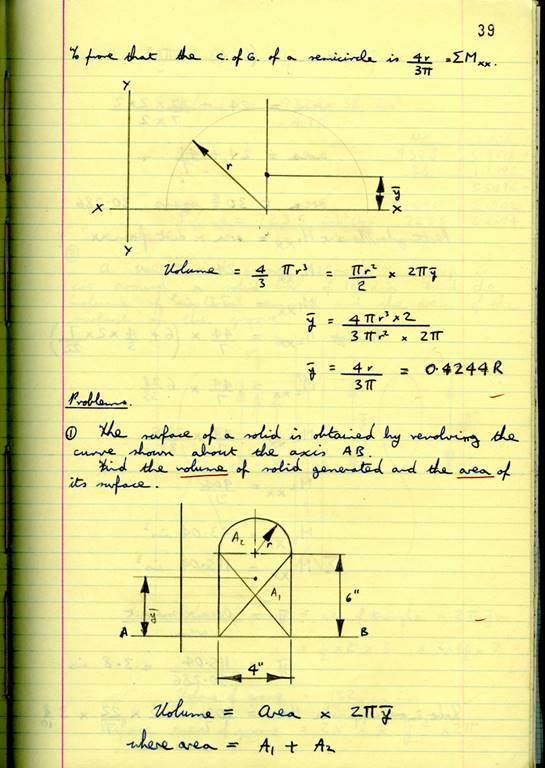 39
To prove that the C. of G. of a semicircle is 4r/3π = ΣMxx.
Y
r
ȳ
X X
Y
Volume = 4/3 πr³ = πr²/2 × 2πȳ
ȳ = 4πr³×2 / 3πr² × 2π
ȳ = 4r/3π = 0.4244R
Problems.
① The surface of a solid is obtained by revolving the
curve shown about the axis AB.
Find the volume of solid generated and the area of
its surface.
A₂ r
A₁
ȳ 6"
A B
4"
Volume = Area × 2πȳ
where area = A₁ + A₂